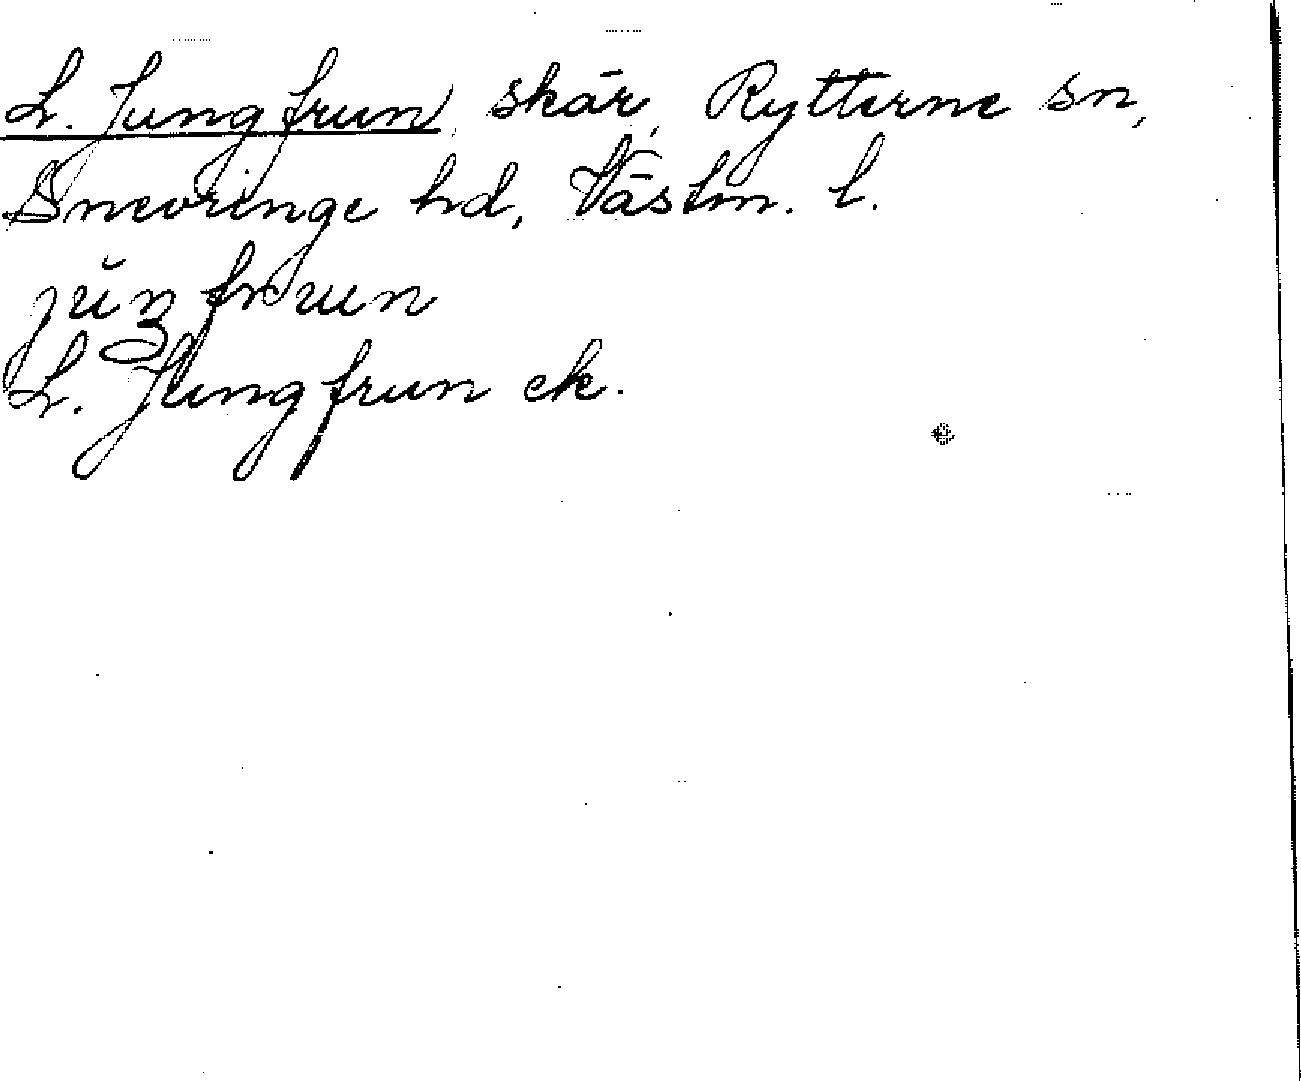 L. Jungfrun, skär, Rytterne sn,
Snevringe hd, Västm. l.
jŭŋfrun
L. Jungfrun ek.